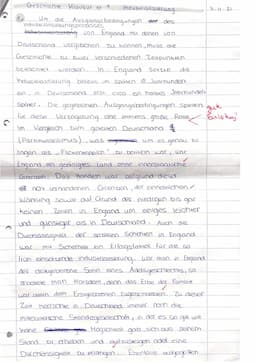 Geschichte Klausur Nr. 1 Industrialisierung
Um die Ausgangsbedingungen des
Industrialisierungsprozesses
England mit denen von
Deutschland vergleichen zu können, muss die
Geschichte zu zwei verschiedenen Zeitpunkten
betrachtet werden. In England setzte die
Industrialisierung bereits im späten Jahrhundert
ein, in Deutschland erst circa ein halbes Jahrhundert
später. Die gegebenen Ausgangsbedingungen spielen
für diese Verzögerung eine immens große Rolle.
Im Vergleich zum geteilten Deutschland
(Partikularismus), was um es genau zu
sagen als "Flickenteppich" zu betiteln war, war
England ein geeinigtes Land ohne innenpolitische
Grenzen. Das Handeln war aufgrund dieser
nicht vorhandenen Grenzen, der einheitlichen
Währung sowie auf Grund des niedrigen bis gar
keinen Zöllen in England um einiges leichter
und günstiger als in Deutschland. Auch die
Durchlässigkeit der sozialen Schichten in England
war mit Sicherheit ein Erfolgsfaktor für die so
früh einsetzende Industrialisierung. War man in England
der drittgeborene Sohn eines Adelsgeschlechts, so
änderte man Horizont, denn das Erbe der Familie
war allein dem Erstgeborenen zugeschrieben. Zu dieser
Zeit herrschte in Deutschland immer noch die
mittelalterliche Ständegesellschaft, in der es so gut wie
keine Möglichkeit gab sich aus seinem
Stand zu erheben und
Durchlässigkeit zu erlangen. Ebenfalls ausgehend